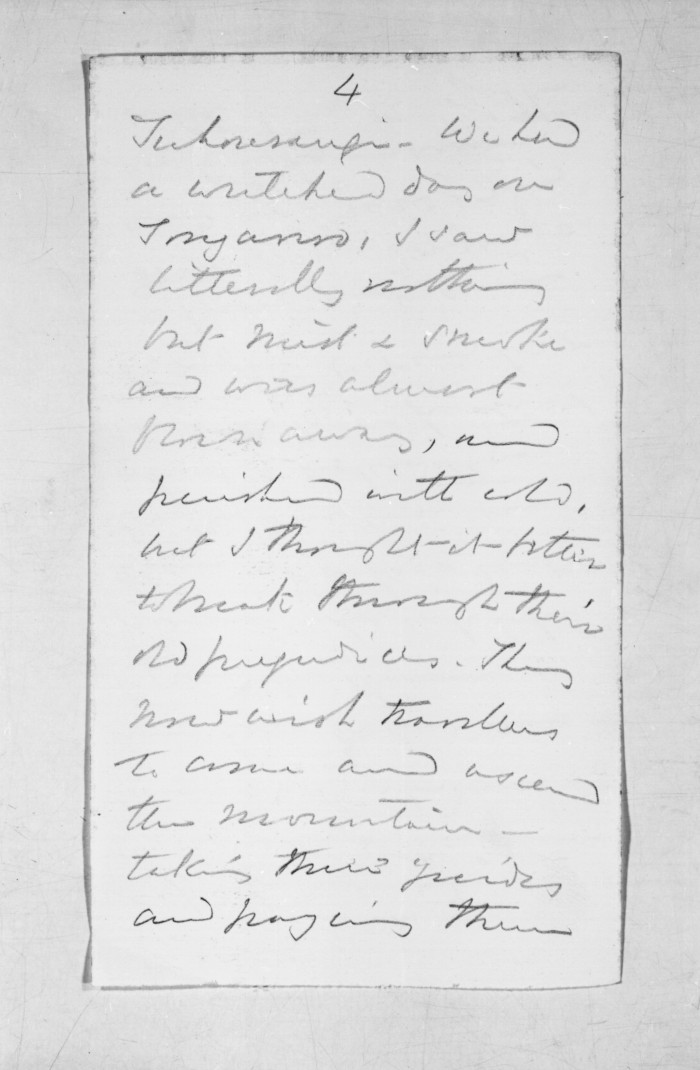 4
We had
a wretched day on
Tongariro, I saw
litterally nothing
but mist & smoke
and was almost
blown away, and
perished with cold,
but I thought it better
to break through their
old prejudices. They
now wish travellers
to come and ascend
the mountain -
taking their guides
and paying them